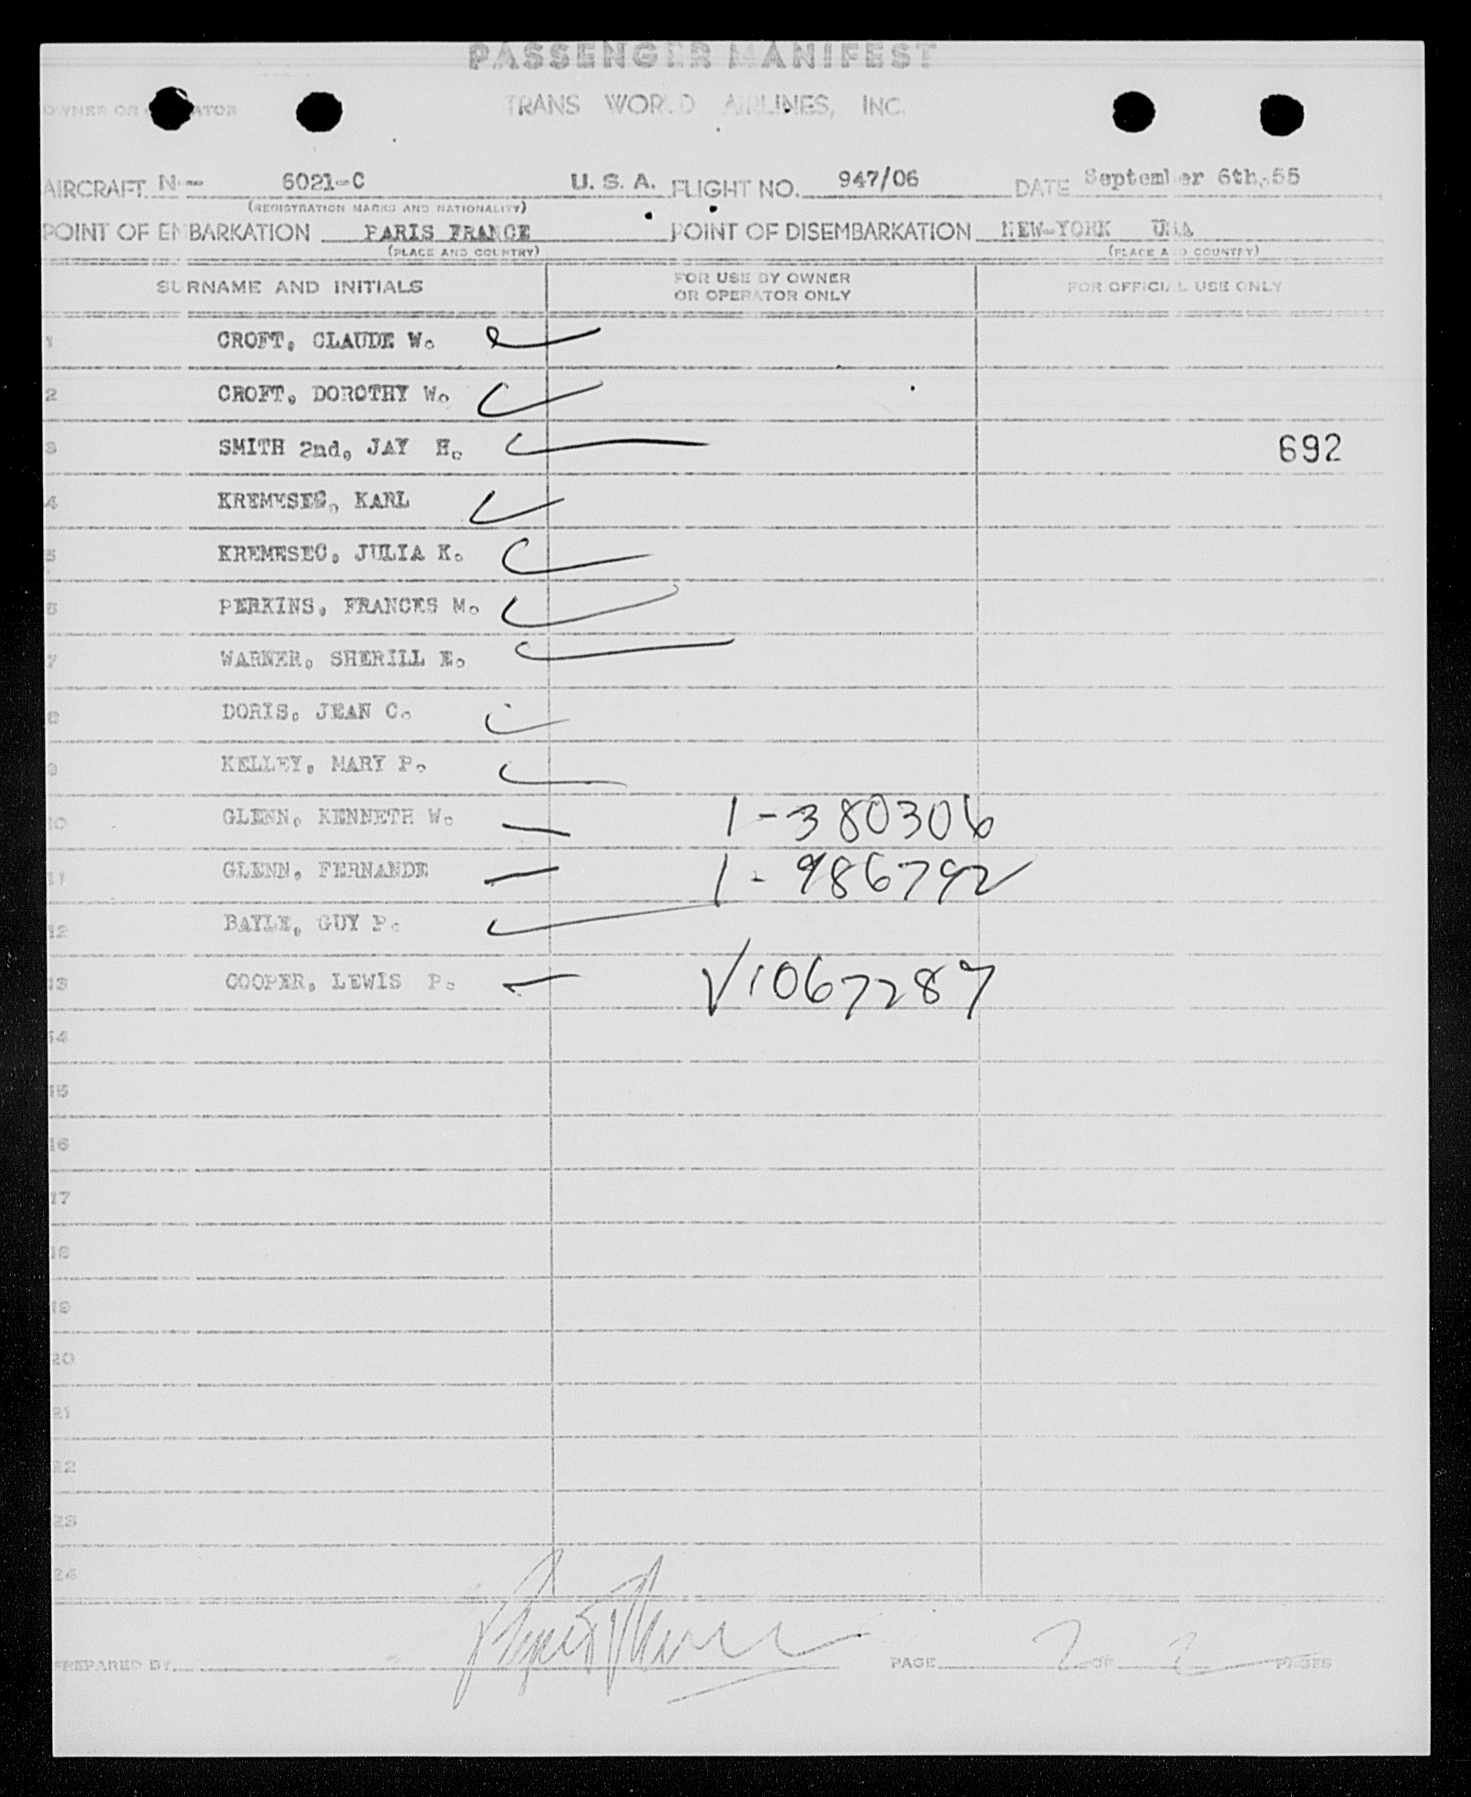 PASSENGER MANIFEST
OWNER OR OPERATOR TRANS WORLD AIRLINES, INC.
AIRCRAFT N-- 6021-C U. S. A. FLIGHT NO. 947/06 DATE September 6th,55
(REGISTRATION MARKS AND NATIONALITY)
POINT OF EMBARKATION PARIS FRANCE POINT OF DISEMBARKATION NEW-YORK USA
(PLACE AND COUNTRY) (PLACE AND COUNTRY)
SURNAME AND INITIALS FOR USE BY OWNER OR OPERATOR ONLY FOR OFFICIAL USE ONLY
1 CROFT, CLAUDE W.
2 CROFT, DOROTHY W.
3 SMITH 2nd, JAY H. 692
4 KREMESEC, KARL
5 KREMESEC, JULIA K.
6 PERKINS, FRANCES M.
7 WARNER, SHERILL E.
8 DORIS, JEAN C.
9 KELLEY, MARY P.
10 GLENN, KENNETH W. 1-380306
11 GLENN, FERNANDE 1-986792
12 BAYLE, GUY P.
13 COOPER, LEWIS P. V1067287
14
15
16
17
18
19
20
21
22
23
24
PREPARED BY PAGE 2 OF 2 PAGES